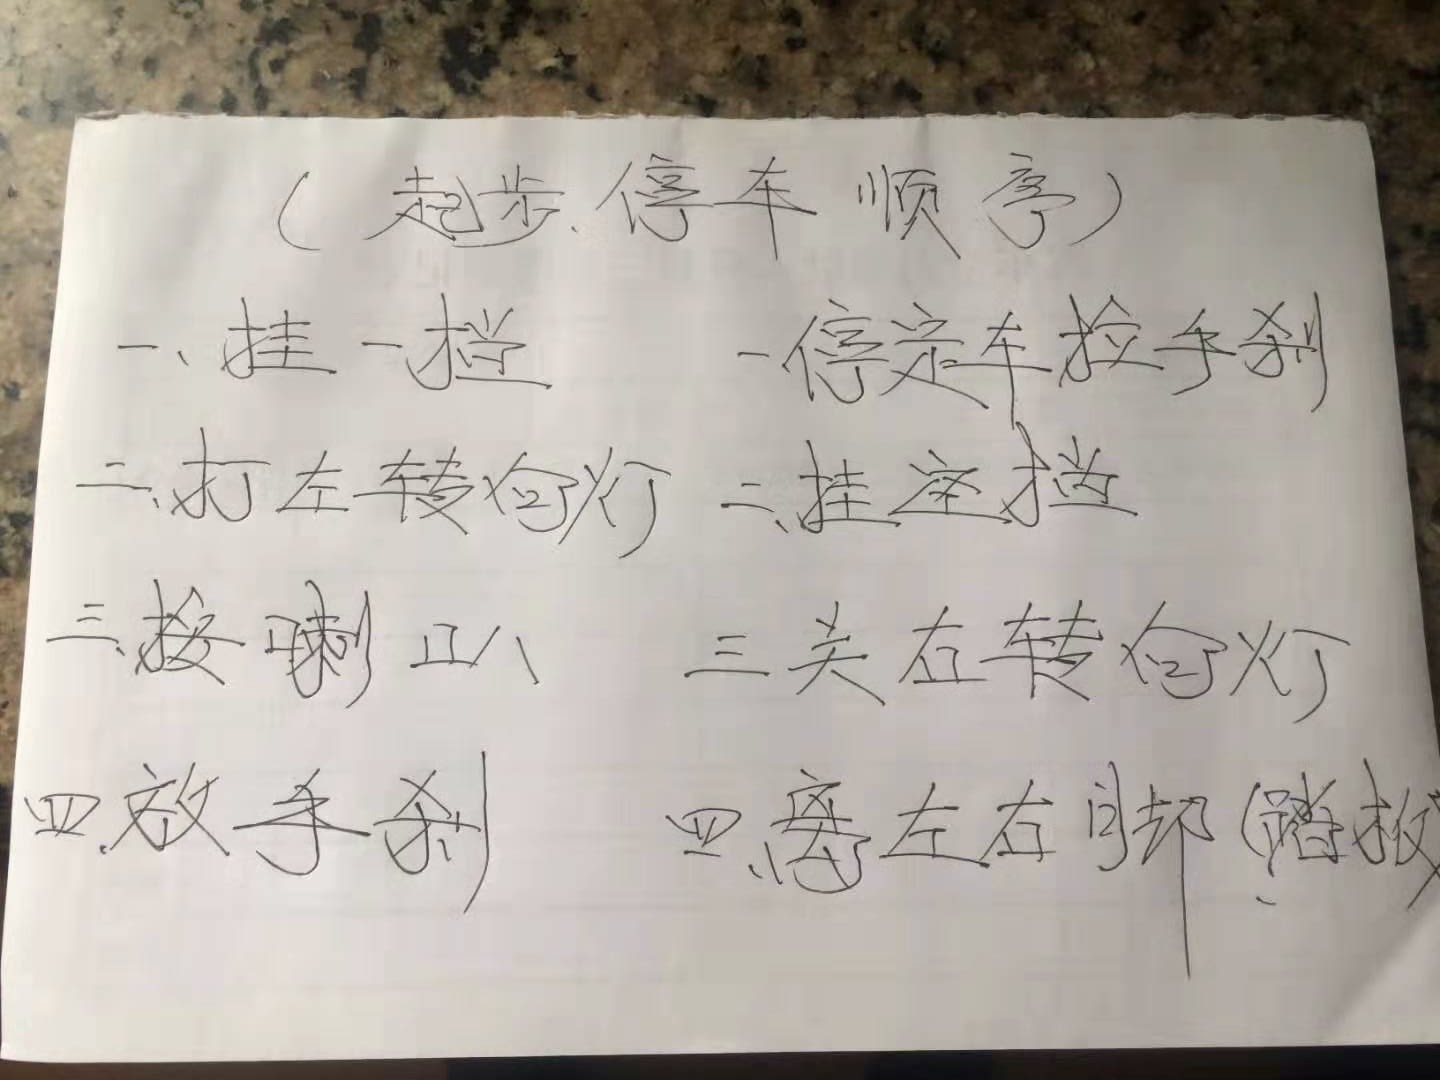 (起步、停车顺序)
一、挂一挡
二、打左转向灯
三、按喇叭
四、放手刹
一停定车拉手刹
二、挂空挡
三关右转向灯
四、离左右脚(踏板)